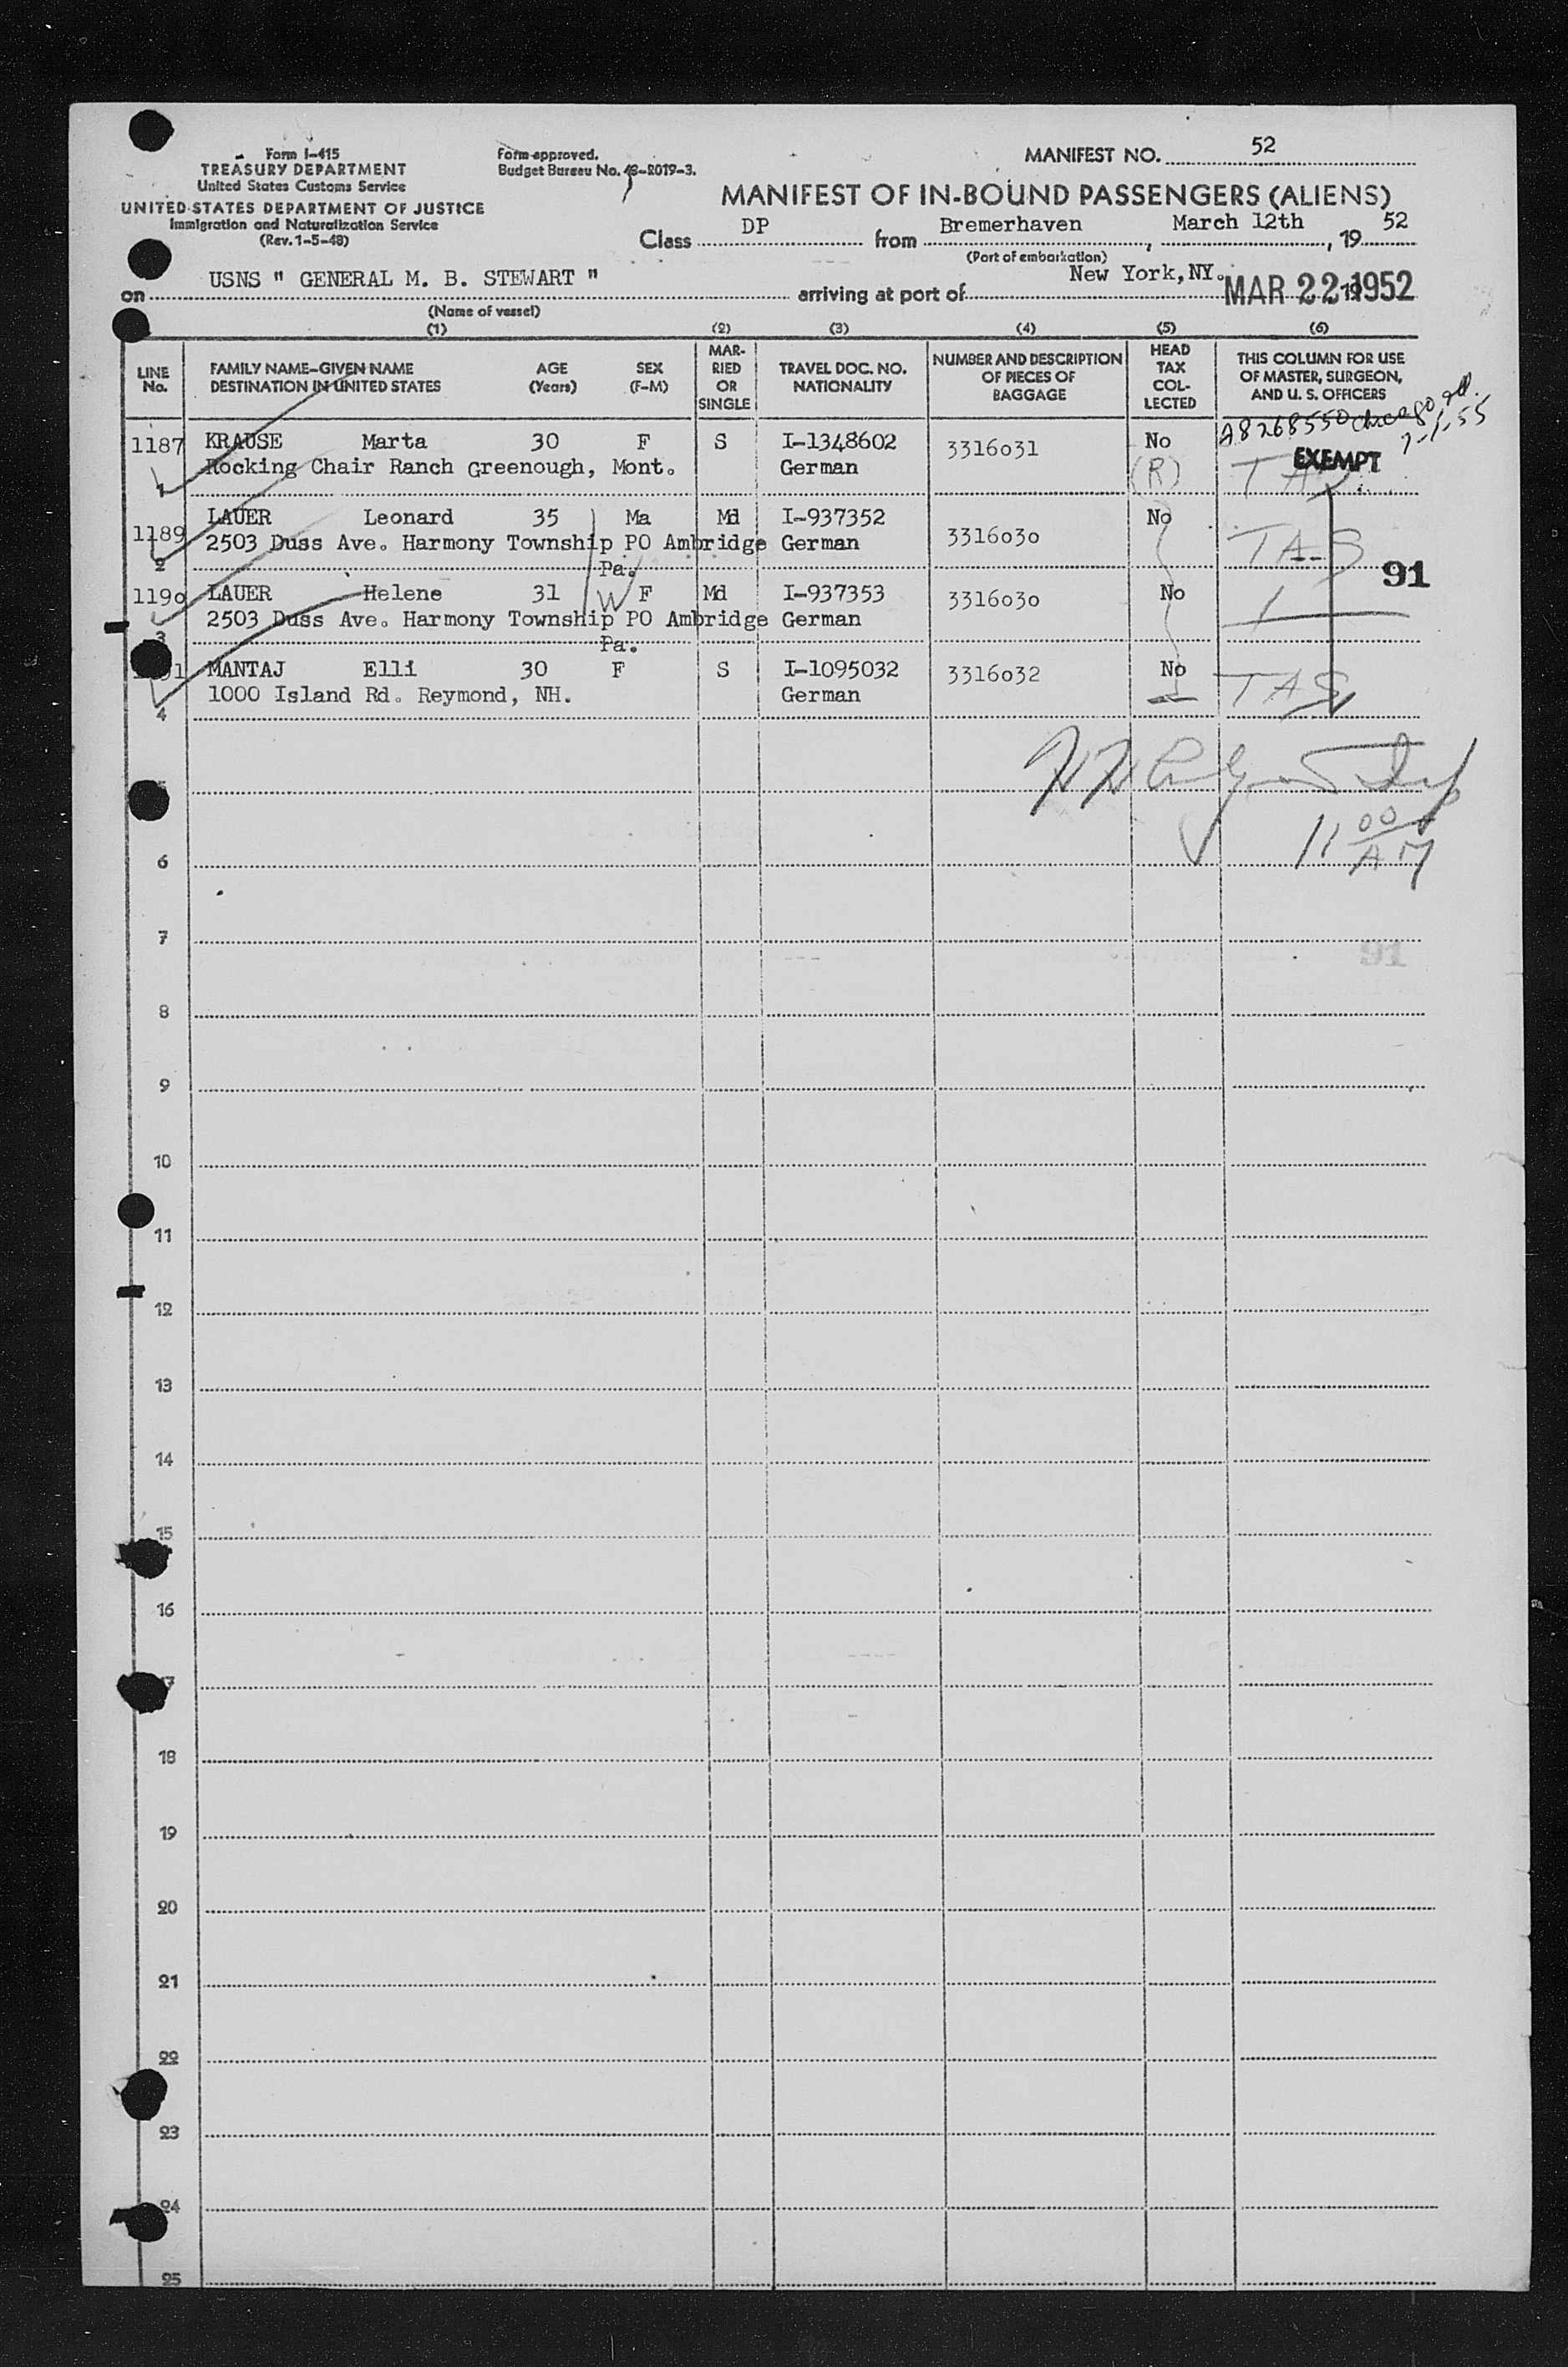 Form I-415
TREASURY DEPARTMENT
United States Customs Service
UNITED STATES DEPARTMENT OF JUSTICE
Immigration and Naturalization Service
(Rev. 1-5-48)
Form approved.
Budget Bureau No. 43-R019-3.
MANIFEST NO. 52
MANIFEST OF IN-BOUND PASSENGERS (ALIENS)
Class DP from Bremerhaven, March 12th, 19 52
(Port of embarkation)
on USNS " GENERAL M. B. STEWART " arriving at port of New York,NY. MAR 22 1952
(Name of vessel)
(1) (2) (3) (4) (5) (6)
LINE No.
FAMILY NAME-GIVEN NAME AGE SEX
DESTINATION IN UNITED STATES (Years) (F-M)
MAR-
RIED
OR
SINGLE
TRAVEL DOC. NO.
NATIONALITY
NUMBER AND DESCRIPTION
OF PIECES OF
BAGGAGE
HEAD
TAX
COL-
LECTED
THIS COLUMN FOR USE
OF MASTER, SURGEON,
AND U. S. OFFICERS
A8268550 Chicago
7-1-55
1187 KRAUSE Marta 30 F S I-1348602 3316o31 No EXEMPT
Rocking Chair Ranch Greenough, Mont. German (R)
1
1189 LAUER Leonard 35 Ma Md I-937352 3316o3o No TAS
2503 Duss Ave. Harmony Township PO Ambridge German
2 Pa. 91
119o LAUER Helene 31 W F Md I-937353 3316o3o No
2503 Duss Ave. Harmony Township PO Ambridge German
3 Pa.
MANTAJ Elli 30 F S I-1095032 3316o32 No TAS
1000 Island Rd. Reymond, NH. German
4
11 00 AM
6
7
91
8
9
10
11
12
13
14
15
16
18
19
20
21
22
23
24
25